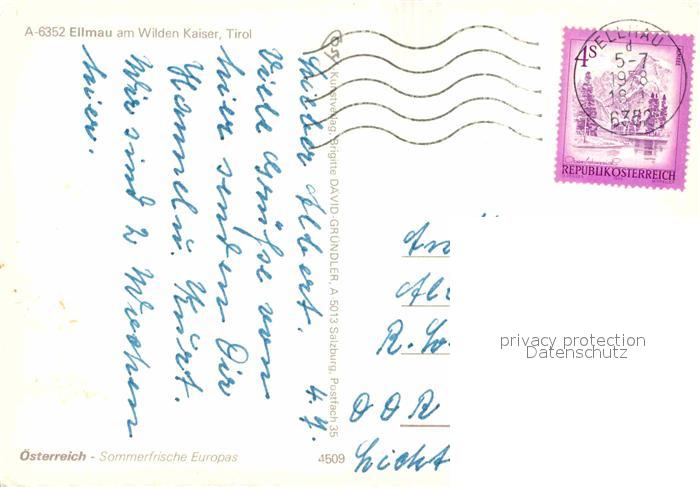 A-6352 Ellmau am Wilden Kaiser, Tirol
4. 7.
Lieber Albert.
Viele Grüße von
hier senden Dir
Hannelu. Kurt.
Wir sind 2 Wochen
hier.
Österreich - Sommerfrische Europas
4509
Kunstverlag, Brigitte DAVID-GRÜNDLER, A-5013 Salzburg, Postfach 35
ELLMAU
5-7
18
6352
4S
REPUBLIK ÖSTERREICH
An
R.
DDR
Licht
privacy protection
Datenschutz